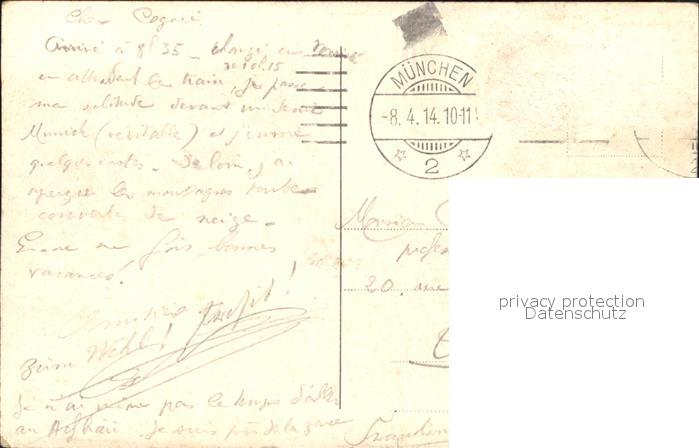 Cher Cognié
Arrivé à 8h 35 - changé en
en attendant le train, je passe
10h15
ma solitude devant un demi
Munich (véritable) et j'envoie
quelques cartes. De loin, j'ai
aperçu les montagnes toutes
couvertes de neige.
Encore une fois, bonnes
vacances!
Amitiés
Zum Wohl! Prosit!
Je n'ai même pas le temps d'aller
au . Je suis près de la gare
MÜNCHEN
-8. 4. 14. 10-11
2
Monsieur
profes
20. rue
Frankr
privacy protection
Datenschutz